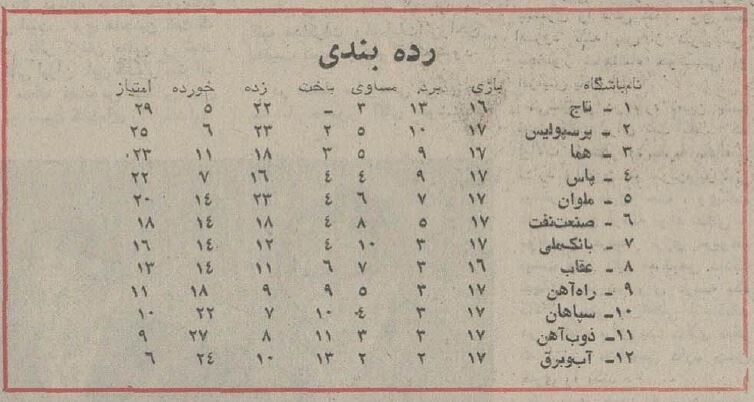 رده بندی
نام‌باشگاه بازی برد مساوی باخت زده خورده امتیاز
۱ - تاج ۱۶ ۱۳ ۳ - ۲۲ ۵ ۲۹
۲ - پرسپولیس ۱۷ ۱۰ ۵ ۲ ۲۳ ۶ ۲۵
۳ - هما ۱۷ ۹ ۵ ۳ ۱۸ ۱۱ ۲۳
۴ - پاس ۱۷ ۹ ۴ ۴ ۱۶ ۷ ۲۲
۵ - ملوان ۱۷ ۷ ۶ ۴ ۲۳ ۱۴ ۲۰
۶ - صنعت‌نفت ۱۷ ۵ ۸ ۴ ۱۸ ۱۴ ۱۸
۷ - بانک‌ملی ۱۷ ۳ ۱۰ ۴ ۱۲ ۱۴ ۱۶
۸ - عقاب ۱۶ ۳ ۷ ۶ ۱۱ ۱۴ ۱۳
۹ - راه‌آهن ۱۷ ۳ ۵ ۹ ۹ ۱۸ ۱۱
۱۰- سپاهان ۱۷ ۳ ۴ ۱۰ ۷ ۲۲ ۱۰
۱۱- ذوب‌آهن ۱۷ ۳ ۳ ۱۱ ۸ ۲۷ ۹
۱۲- آب‌وبرق ۱۷ ۲ ۲ ۱۳ ۱۰ ۲۴ ۶